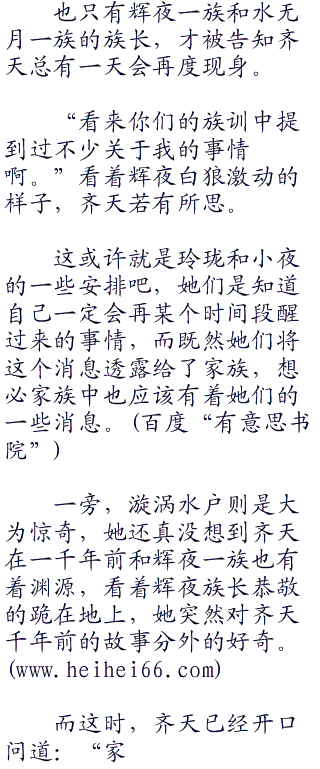 也只有辉夜一族和水无
月一族的族长，才被告知齐
天总有一天会再度现身。
“看来你们的族训中提
到过不少关于我的事情
啊。”看着辉夜白狼激动的
样子，齐天若有所思。
这或许就是玲珑和小夜
的一些安排吧，她们是知道
自己一定会再某个时间段醒
过来的事情，而既然她们将
这个消息透露给了家族，想
必家族中也应该有着她们的
一些消息。(百度“有意思书
院”)
一旁，漩涡水户则是大
为惊奇，她还真没想到齐天
在一千年前和辉夜一族也有
着渊源，看着辉夜族长恭敬
的跪在地上，她突然对齐天
千年前的故事分外的好奇。
(www.heihei66.com)
而这时，齐天已经开口
问道：“家